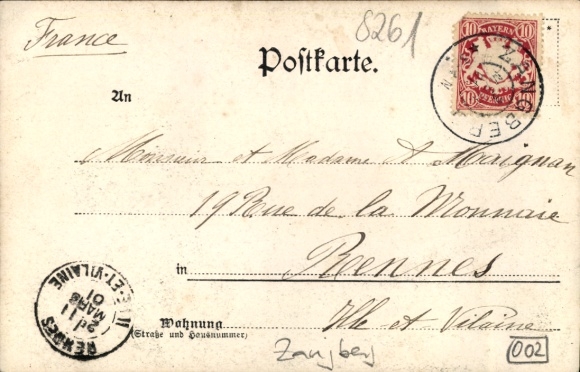 France
8261
Postkarte.
10 BAYERN 10
10 PFENNIG 10
ZANGBERG
An
Monsieur et Madame A Marignan
19 Rue de la Monnaie
in Rennes
Ille et Vilaine
Wohnung
(Straße und Hausnummer)
RENNES
11
MARS
01
ILLE-ET-VILAINE
Zangberg
002